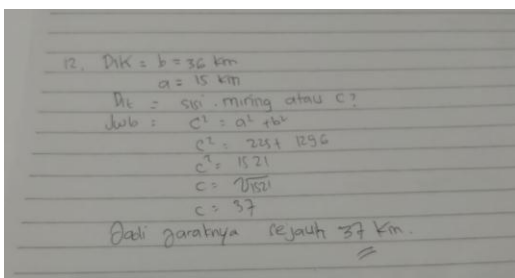 12. Dik = b = 36 km
a = 15 km
Dit = sisi miring atau c?
Jwb : c² = a² + b²
c² = 225 + 1296
c² = 1521
c = √1521
c = 37
Jadi jaraknya sejauh 37 km.